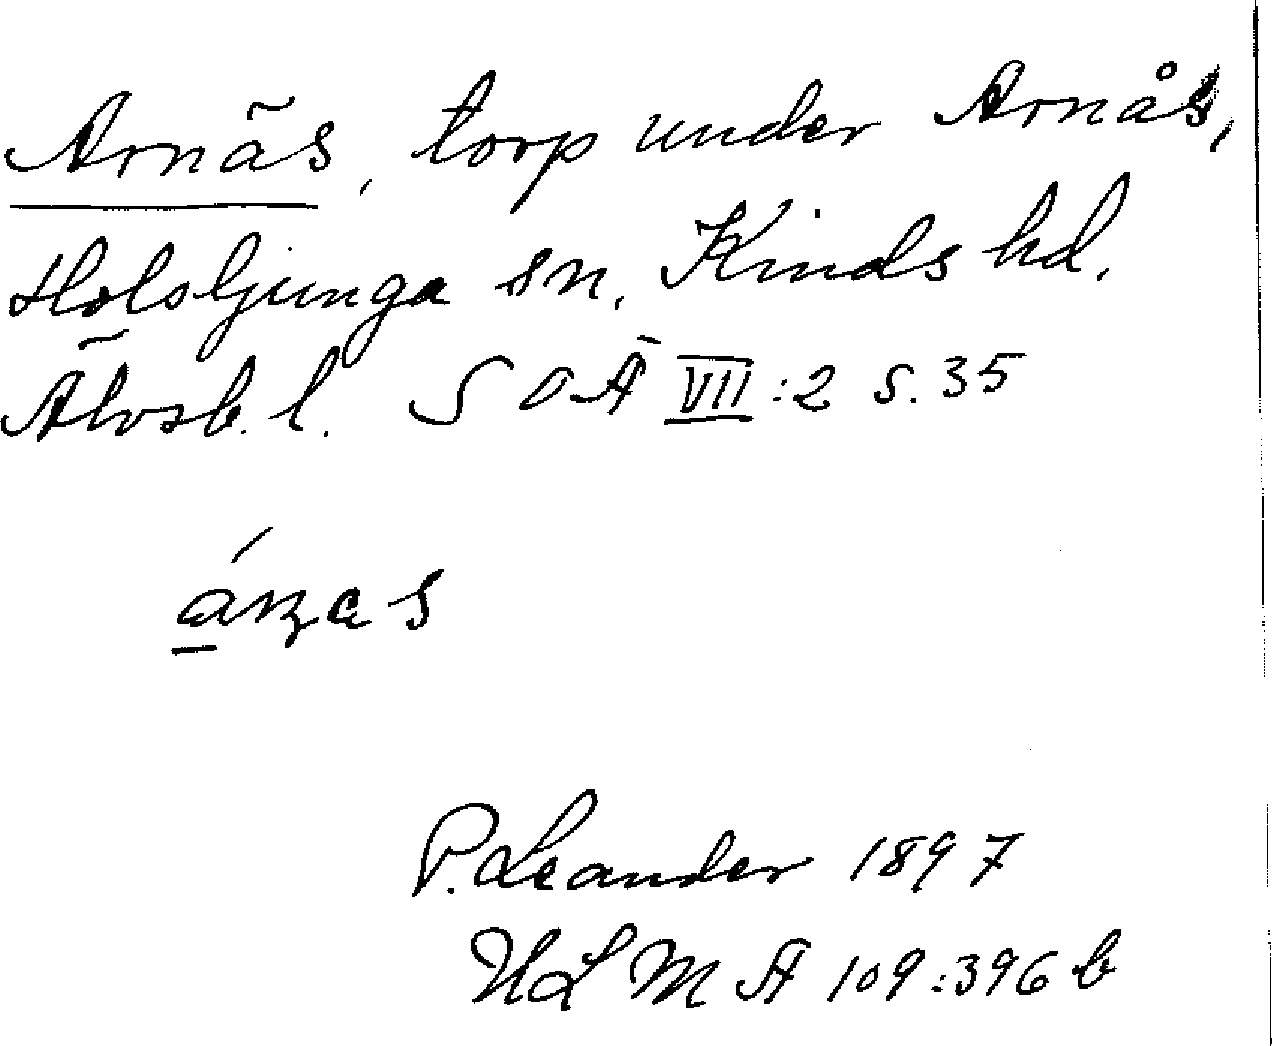 Arnäs, torp under Arnås,
Holsljunga sn, Kinds hd,
Älvsb. l. SOÄ VII:2 s. 35
P. Leander 1897
ULMA 109:396 b